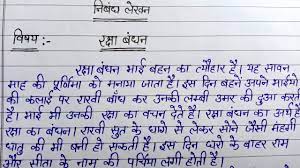 निबंध लेखन
विषय :- रक्षा बंधन
रक्षा बंधन भाई बहन का त्यौहार है। यह सावन
माह की पूर्णिमा को मनाया जाता है। इस दिन बहनें अपने भाईयों
की कलाई पर राखी बाँध कर उनकी लम्बी उमर की दुआ करती
हैं। भाई भी उनकी रक्षा का वचन देते हैं। रक्षा बंधन का अर्थ है
रक्षा का बंधन। राखी सुत के धागे से लेकर सोने जैसी मंहगी
धातु की भी बनी हो सकती है। इस दिन घरों के बाहर राम
और सीता के नाम की पर्चिया लगी होती है।